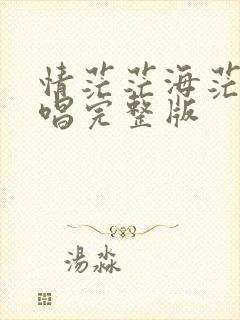 情茫茫海茫
唱完整版
湯淼